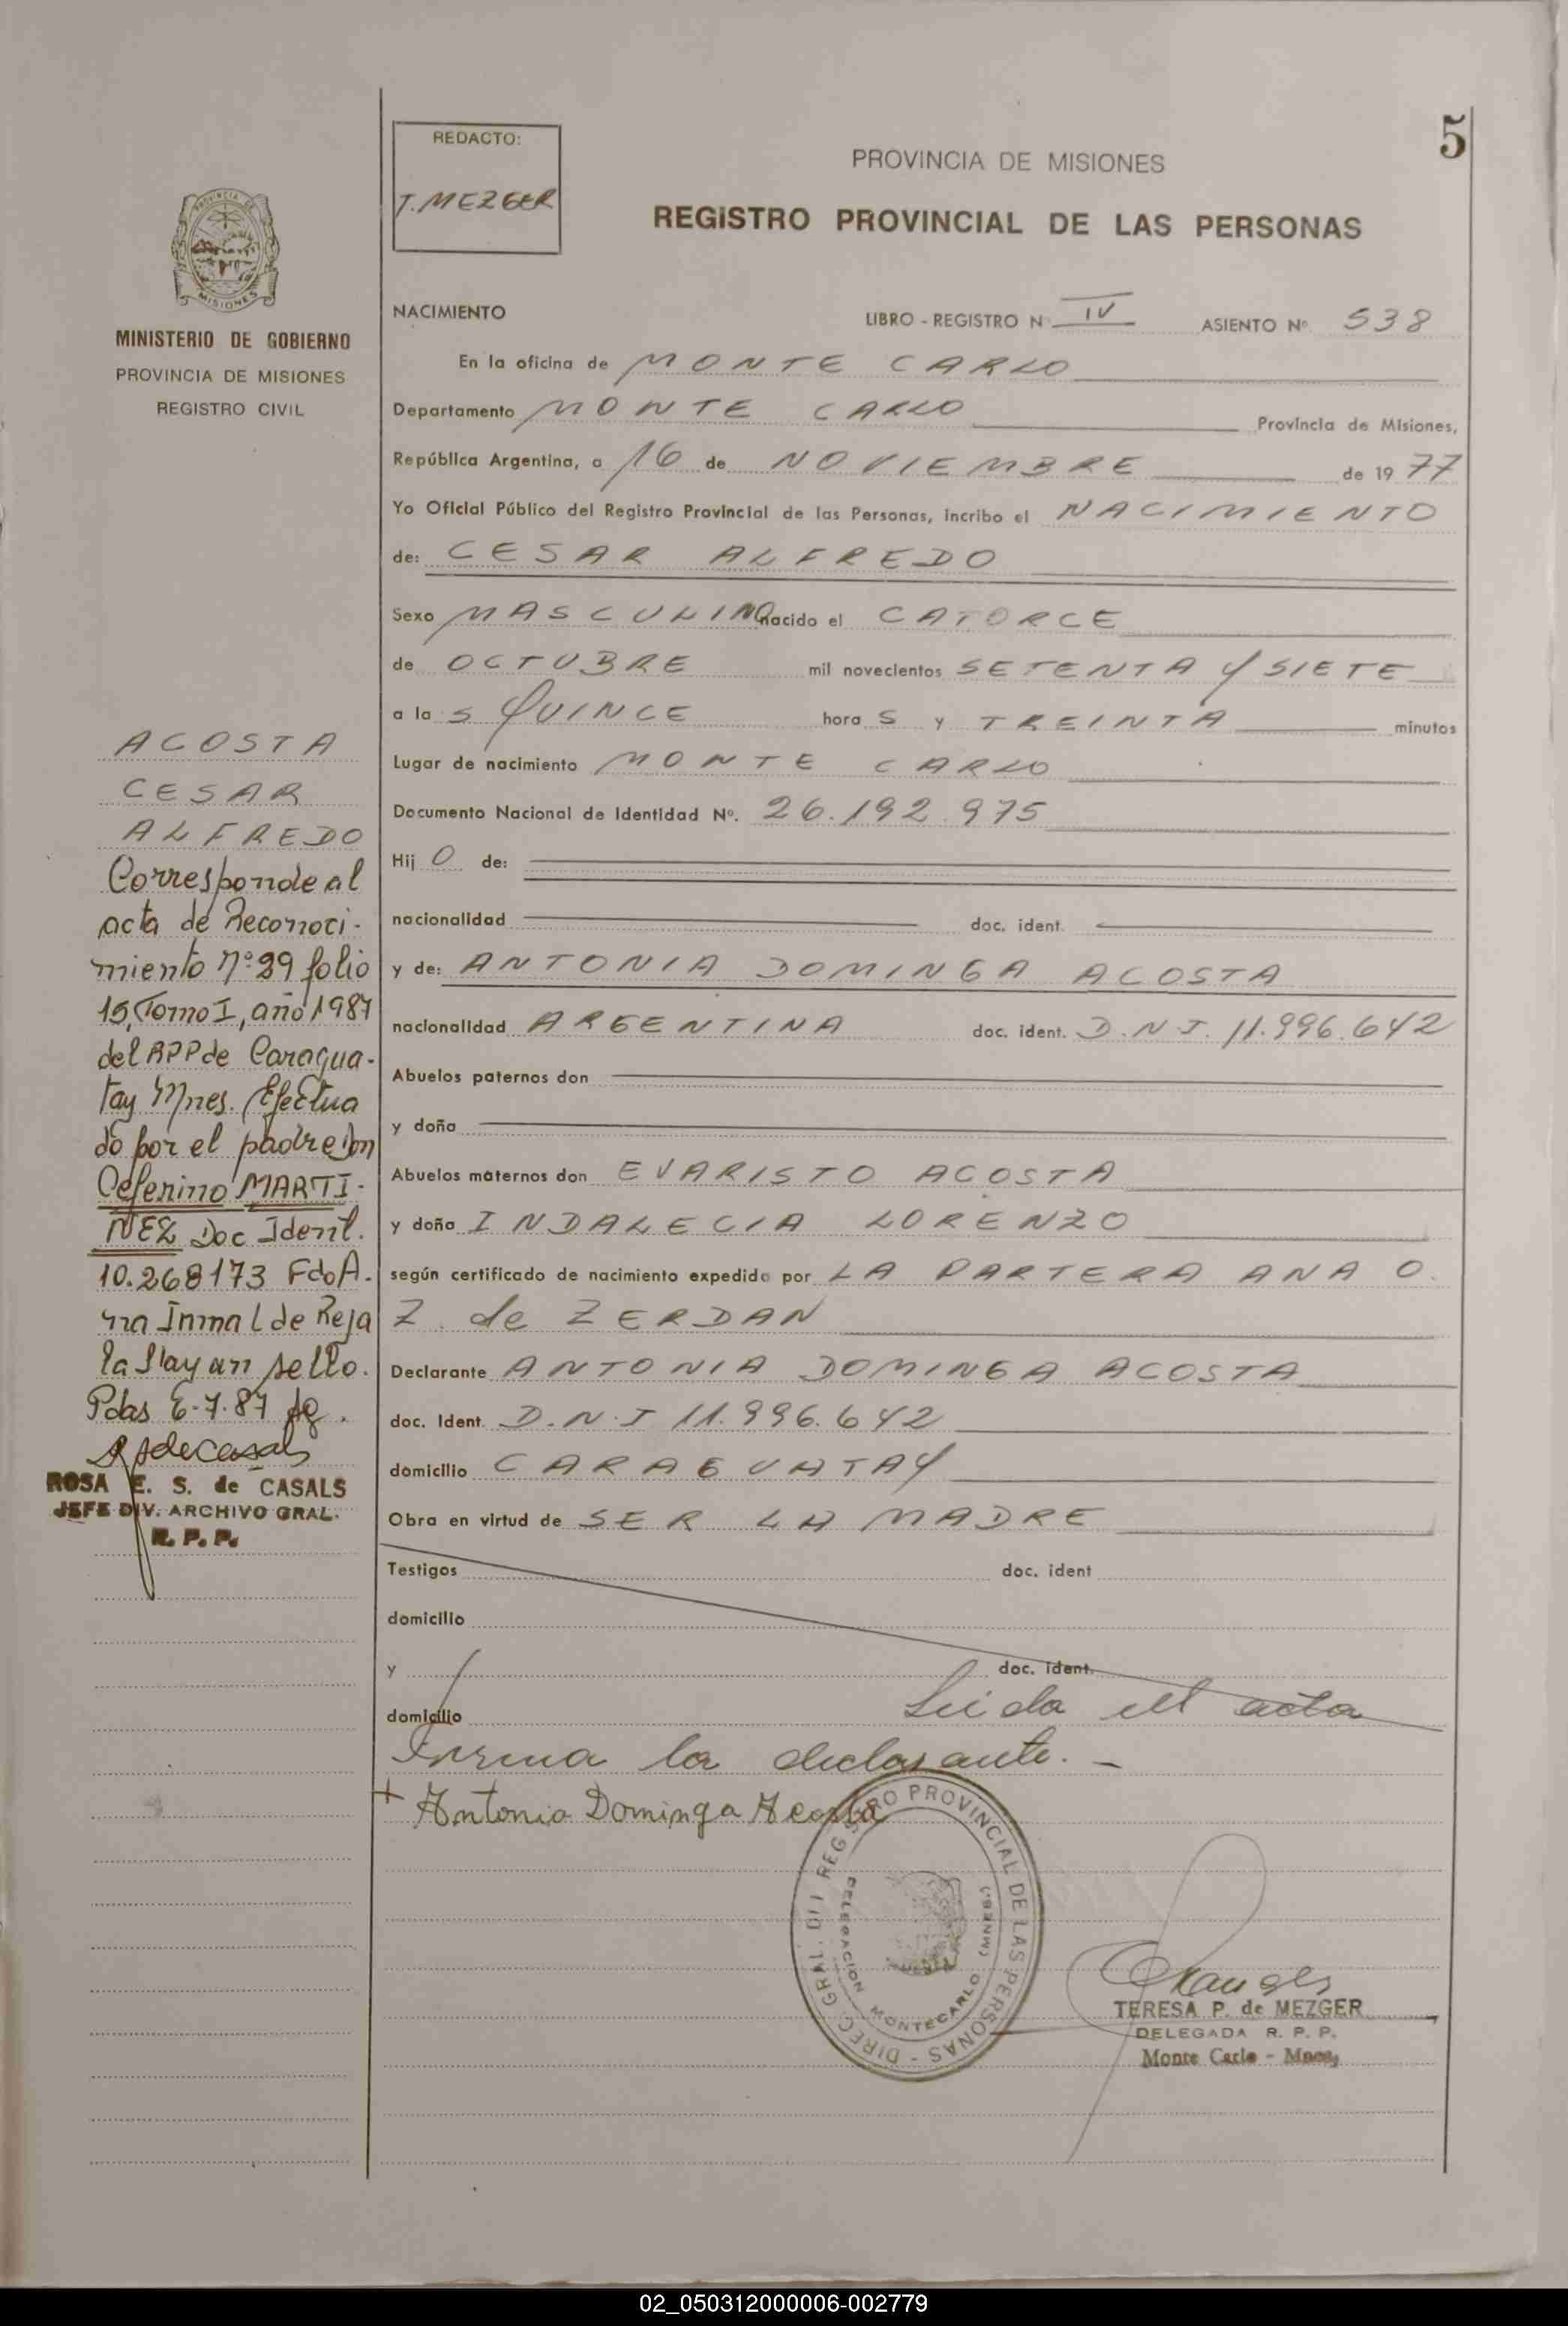 5
REDACTO:
T. MEZGER
PROVINCIA DE MISIONES
REGISTRO PROVINCIAL DE LAS PERSONAS
PROVINCIA DE
MISIONES
MINISTERIO DE GOBIERNO
PROVINCIA DE MISIONES
REGISTRO CIVIL
NACIMIENTO LIBRO - REGISTRO N IV ASIENTO Nº 538
En la oficina de MONTE CARLO
Departamento MONTE CARLO Provincia de Misiones,
República Argentina, a 16 de NOVIEMBRE de 1977
Yo Oficial Público del Registro Provincial de las Personas, incribo el NACIMIENTO
de: CESAR ALFREDO
Sexo MASCULINO nacido el CATORCE
de OCTUBRE mil novecientos SETENTA Y SIETE
a las QUINCE horas y TREINTA minutos
Lugar de nacimiento MONTE CARLO
Documento Nacional de Identidad Nº. 26.192.975
Hijo de:
nacionalidad doc. ident.
y de: ANTONIA DOMINGA ACOSTA
nacionalidad ARGENTINA doc. ident. D.N.I. 11.996.642
Abuelos paternos don
y doña
Abuelos maternos don EVARISTO ACOSTA
y doña INDALECIA LORENZO
según certificado de nacimiento expedido por LA PARTERA ANA O.
Z. de ZERDAN
Declarante ANTONIA DOMINGA ACOSTA
doc. Ident. D.N.I 11.996.642
domicilio CARAGUATAY
Obra en virtud de SER LA MADRE
Testigos doc. ident
domicilio
y doc. ident.
domicilio Leida el acta
Firma la declarante. -
+ Antonia Dominga Acosta
ACOSTA
CESAR
ALFREDO
Corresponde al
acta de Reconoci-
miento Nº 39 folio
15, Tomo I, año 1987
del RPP de Caragua-
tay Mnes. Efectua
do por el padre Don
Ceferino MARTI-
NEZ Doc Ident.
10.268173 Fdo A.
na Inma L de Reja
la Hay un sello.
Pdas 6-7-87
ROSA E. S. de CASALS
JEFE DIV. ARCHIVO GRAL.
R. P. P.
DIREC. GRAL. DEL REGISTRO PROVINCIAL DE LAS PERSONAS -
DELEGACION MONTECARLO (MNES.)
TERESA P. de MEZGER
DELEGADA R. P. P.
Monte Carlo - Mnes,
02_050312000006-002779